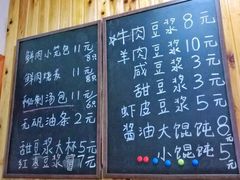 鲜肉小笼包 11元
鲜肉烧卖 11元
秘制汤包 11元
无矾油条 2元
甜豆浆大杯 5元
红枣豆浆 7元
牛肉豆浆 8元
羊肉豆浆 10元
咸豆浆 3元
甜豆浆 3元
虾皮豆浆 5元
酱油大馄饨 8元
小馄饨 5元